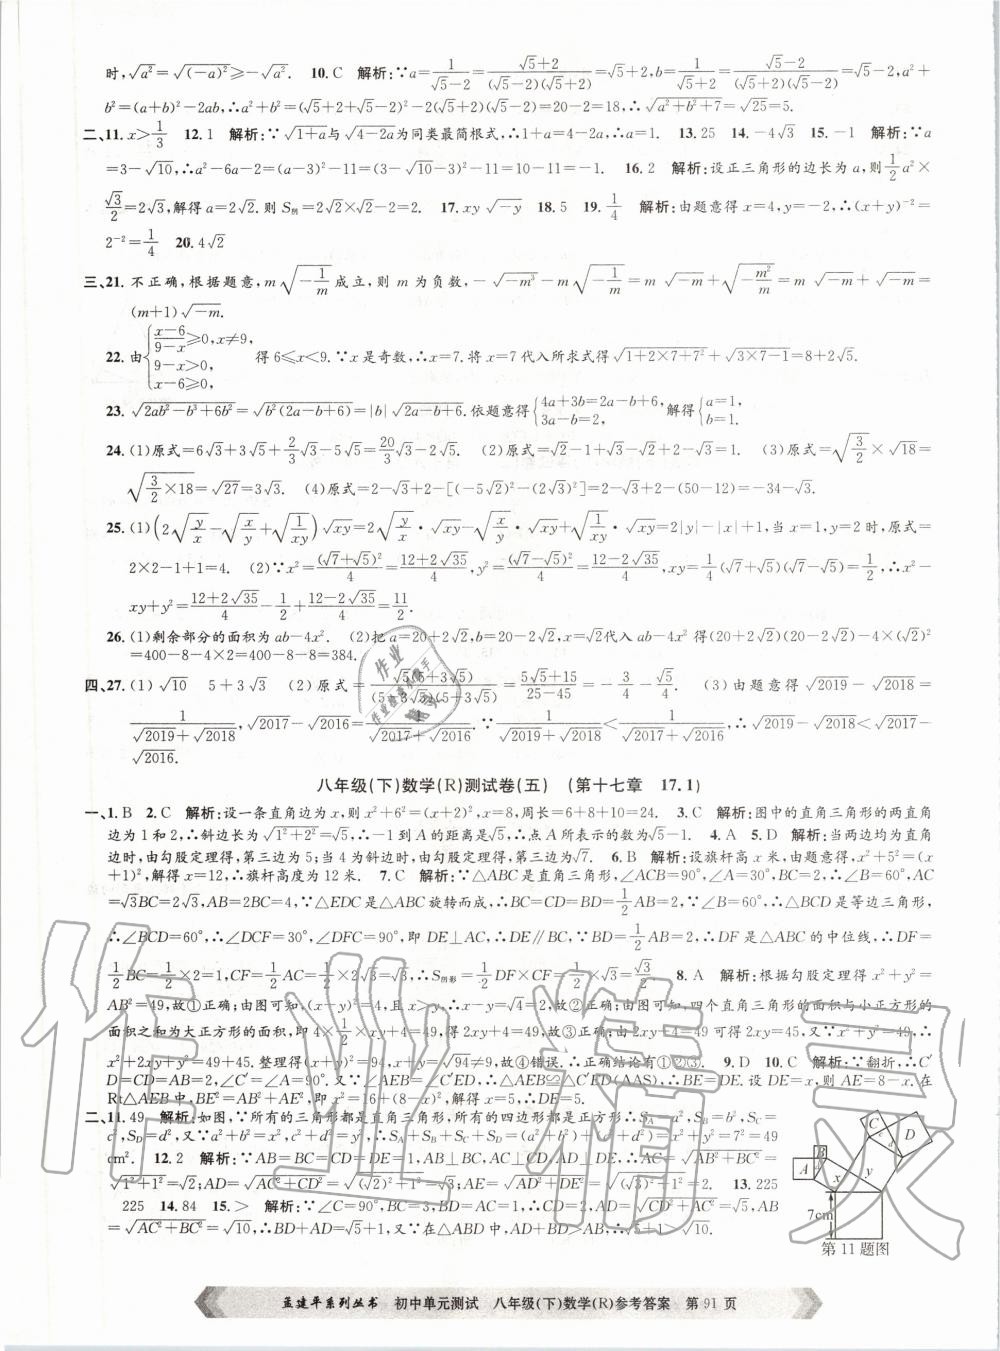 时,√a²=√(-a)²≥-√a². 10.C 解析:∵a=1/(√5-2)=(√5+2)/((√5-2)(√5+2))=√5+2,b=1/(√5+2)=(√5-2)/((√5+2)(√5-2))=√5-2,a²+
b²=(a+b)²-2ab,∴a²+b²=(√5+2+√5-2)²-2(√5+2)(√5-2)=20-2=18,∴√(a²+b²+7)=√25=5.
二、11.x>1/3 12.1 解析:∵√(1+a)与√(4-2a)为同类最简根式,∴1+a=4-2a,∴a=1. 13.25 14.-4√3 15.-1 解析:∵a
=3-√10,∴a²-6a-2=(a-3)²-11=(3-√10-3)²-11=10-11=-1. 16.2 解析:设正三角形的边长为a,则1/2a²×
√3/2=2√3,解得a=2√2.则S阴=2√2×√2-2=2. 17.xy√-y 18.5 19.1/4 解析:由题意得x=4,y=-2,∴(x+y)⁻²=
2⁻²=1/4 20.4√2
三、21.不正确,根据题意,m√(-1/m)成立,则m为负数,-√-m³-m√(-1/m)=-m√-m+√(-m²/m)=-m√-m+√-m=
(m+1)√-m.
22.由{(x-6)/(9-x)≥0,x≠9, 9-x>0, x-6≥0, 得6≤x<9.∵x是奇数,∴x=7.将x=7代入所求式得√(1+2×7+7²)+√(3×7-1)=8+2√5.
23.√(2ab²-b³+6b²)=√(b²(2a-b+6))=|b|√(2a-b+6).依题意得{4a+3b=2a-b+6, 3a-b=2, 解得{a=1, b=1.
24.(1)原式=6√3+3√5+2/3√3-5√5=20/3√3-2√5. (2)原式=√2-1+√3-√2+2-√3=1. (3)原式=√(3/2)×√18=
√(3/2×18)=√27=3√3. (4)原式=2-√3+2-[(-5√2)²-(2√3)²]=2-√3+2-(50-12)=-34-√3.
25.(1)(2√(y/x)-√(x/y)+√(1/xy))√xy=2√(y/x)·√xy-√(x/y)·√xy+√(1/xy)·√xy=2|y|-|x|+1,当x=1,y=2时,原式=
2×2-1+1=4. (2)∵x²=(√7+√5)²/4=(12+2√35)/4,y²=(√7-√5)²/4=(12-2√35)/4,xy=1/4(√7+√5)(√7-√5)=1/2,∴x²-
xy+y²=(12+2√35)/4-1/2+(12-2√35)/4=11/2.
26.(1)剩余部分的面积为ab-4x². (2)把a=20+2√2,b=20-2√2,x=√2代入ab-4x²得(20+2√2)(20-2√2)-4×(√2)²
=400-8-4×2=400-8-8=384.
四、27.(1)√10 5+3√3 (2)原式=√5(5+3√5)/((5-3√5)(5+3√5))=(5√5+15)/(25-45)=-3/4-√5/4. (3)由题意得√2019-√2018=
1/(√2019+√2018),√2017-√2016=1/(√2017+√2016).∵1/(√2019+√2018)<1/(√2017+√2016),∴√2019-√2018<√2017-
√2016.
八年级(下)数学(R)测试卷(五) (第十七章 17.1)
一、1.B 2.C 解析:设一条直角边为x,则x²+6²=(x+2)²,x=8,周长=6+8+10=24. 3.C 解析:图中的直角三角形的两直角
边为1和2,∴斜边长为√(1²+2²)=√5,∴-1到A的距离是√5,∴点A所表示的数为√5-1. 4.A 5.D 解析:当两边均为直角
边时,由勾股定理得,第三边为5;当4为斜边时,由勾股定理得,第三边为√7. 6.B 解析:设旗杆高x米,由题意得,x²+5²=(x
+1)²,解得x=12,∴旗杆高度为12米. 7.C 解析:∵△ABC是直角三角形,∠ACB=90°,∠A=30°,BC=2,∴∠B=60°,AC
=√3BC=2√3,AB=2BC=4,∵△EDC是△ABC旋转而成,∴BC=CD=BD=1/2AB=2,∵∠B=60°,∴△BCD是等边三角形,
∴∠BCD=60°,∴∠DCF=30°,∠DFC=90°,即DE⊥AC,∴DE∥BC,∵BD=1/2AB=2,∴DF是△ABC的中位线,∴DF=
1/2BC=1/2×2=1,CF=1/2AC=1/2×2√3=√3,∴S阴影=1/2DF×CF=1/2×√3=√3/2. 8.A 解析:根据勾股定理得x²+y²=
AB²=49,故①正确;由图可知,(x-y)²=4,且x>y,∴x-y=√4=2,故②正确;由图可知,四个直角三角形的面积与小正方形的
面积之和为大正方形的面积,即4×1/2xy+4=49,即2xy+4=49,故③正确;由2xy+4=49可得2xy=45,又∵x²+y²=49,∴
x²+2xy+y²=49+45.整理得(x+y)²=94,x+y=√94≠9,故④错误.∴正确结论有①②③. 9.D 10.C 解析:∵翻折,∴C′
D=CD=AB,∠C=∠C′=90°=∠A.又∵∠AEB=∠C′ED,∴△AEB≌△C′ED(AAS).∴BE=DE.设DE=x,则AE=8-x.在
Rt△AEB中,BE²=AE²+AB²,即x²=16+(8-x)²,解得x=5,∴DE=5.
二、11.49 解析:如图,∵所有的三角形都是直角三角形,所有的四边形都是正方形,∴S_A=a²,S_B=b²,S_C=
c²,S_D=d²,又∵a²+b²=x²,c²+d²=y²,∴S_A+S_B+S_C+S_D=(a²+b²)+(c²+d²)=x²+y²=7²=49
cm². 12.2 解析:∵AB=BC=CD=DE=1,AB⊥BC,AC⊥CD,AD⊥DE,∴AC=√(AB²+BC²)=
√(1²+1²)=√2;AD=√(AC²+CD²)=√((√2)²+1²)=√3;AE=√(AD²+DE²)=√((√3)²+1²)=2. 13.225
225 14.84 15.> 解析:∵∠C=90°,BC=3,BD=AC=1,∴CD=2,AD=√(CD²+AC²)=√5,AB=
√(AC²+BC²)=√10,∴BD+AD=√5+1,又∵在△ABD中,AD+BD>AB,∴√5+1>√10.
C
c
d
D
B
A
x
y
7cm
第11题图
孟建平系列丛书 初中单元测试 八年级(下)数学(R)参考答案 第91页
作业精灵